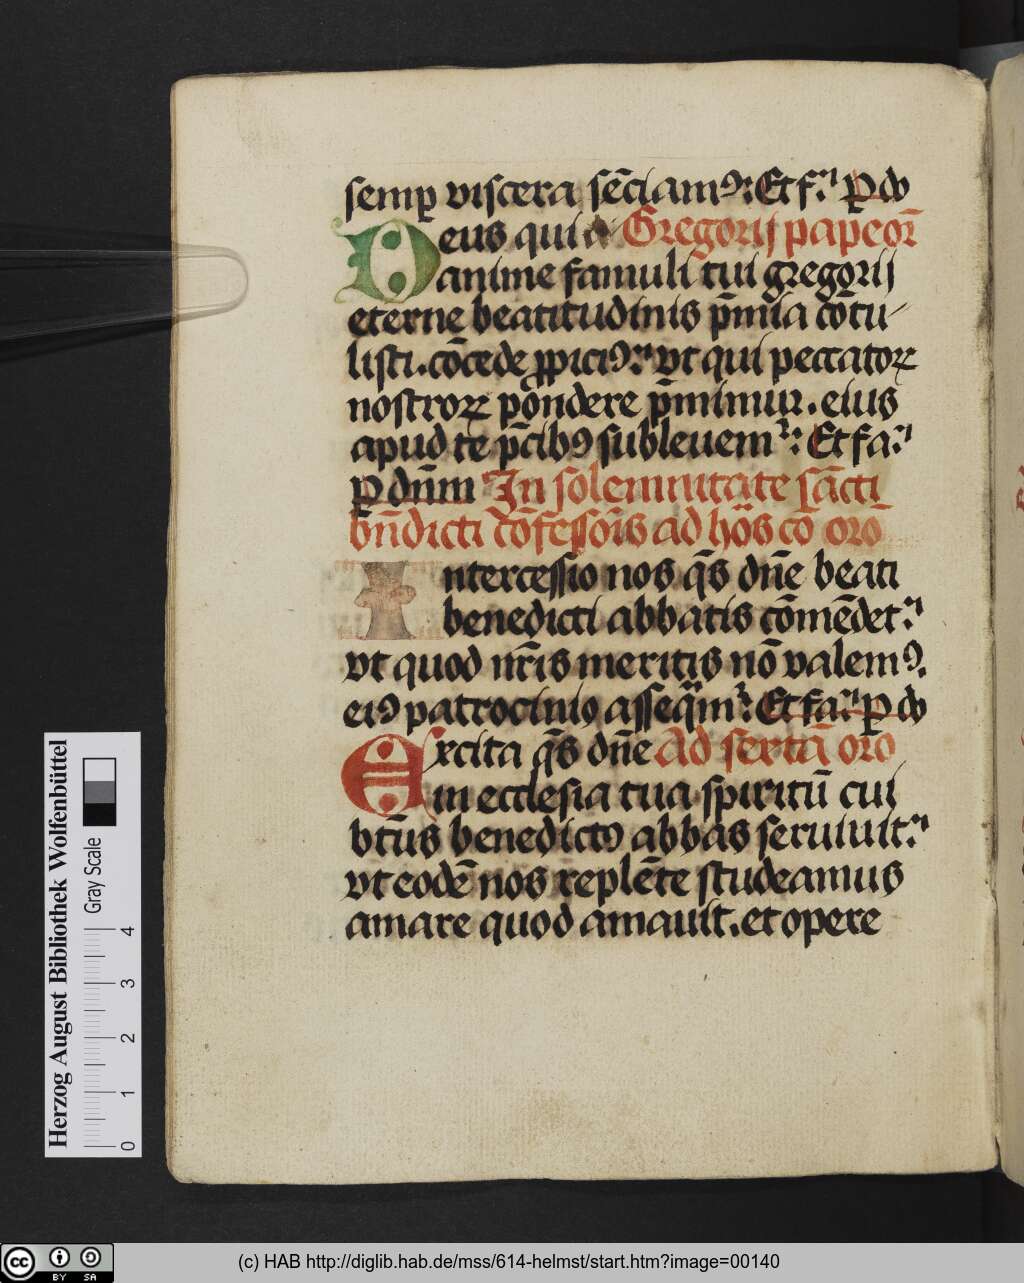 semꝑ viscera sēctamꝰ: Et f. ꝑ do
Deus qui a Gregorij pape or̄
anime famuli tui gregorij
eterne beatitudinis p̄mia cōtu
listi. cōcede ꝓpiciꝰ: vt qui peccatoꝝ
nostroꝝ pōndere p̄mimur. eius
apud te p̄cibꝰ subleuem: Et fa.
ꝑ dn̄m In solemnitate sācti
bn̄dicti cōfessoris ad hōs co oro
Intercessio nos q̄s dn̄e beati
benedicti abbatis cōmēdet:
vt quod nr̄is meritis nō valemꝰ.
eiꝰ patrocinio asseq̄m: Et fa. ꝑ do
Excita q̄s dn̄e Ad sextā oro
in ecclesia tua spiritū cui
bt̄us benedictꝰ abbas seruiuit:
vt eodē nos replēte studeamus
amare quod amauit. et opere
Herzog August Bibliothek Wolfenbüttel
Gray Scale
0 1 2 3 4
cc BY SA
(c) HAB http://diglib.hab.de/mss/614-helmst/start.htm?image=00140